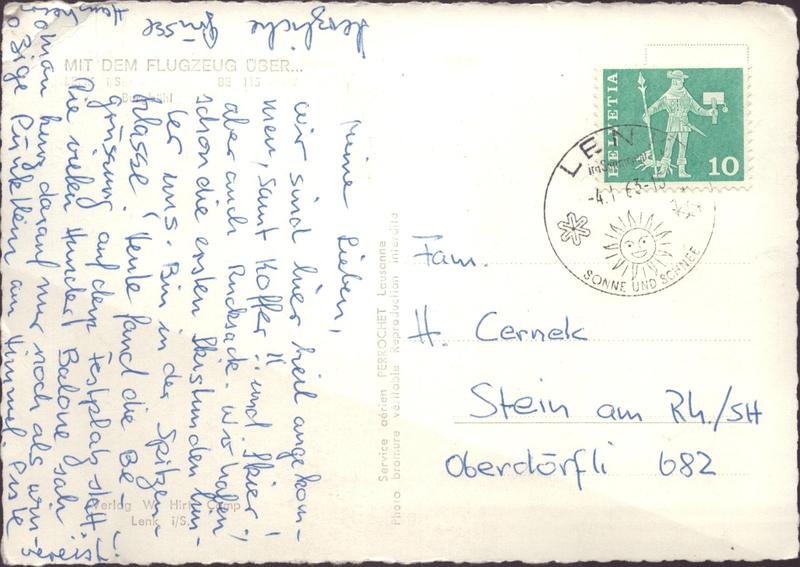 MIT DEM FLUGZEUG ÜBER...
LENK i/S.
BE 115
Meine Lieben,
wir sind hier heil angekom-
men, samt Koffer!! und Skier!
aber auch Rucksack. Wir haben
schon die ersten Skistunden hin-
ter uns. Bin in der Spitzen-
klasse! Heute fand die Be-
grüssung auf dem Festplatz statt!
Die vielen Hundert Balone sah
man kurz darauf nur noch als win-
zige Pünktlein am Himmel
Herzliche
Grüsse
Verlag W. Hirt
Lenk i/S.
Service aérien PERROCHET Lausanne
Photo bromure véritable Reproduction interdite
HELVETIA
10
LENK
SONNE UND SCHNEE
Fam.
H. Cernek
Stein am Rh./SH
Oberdörfli 682